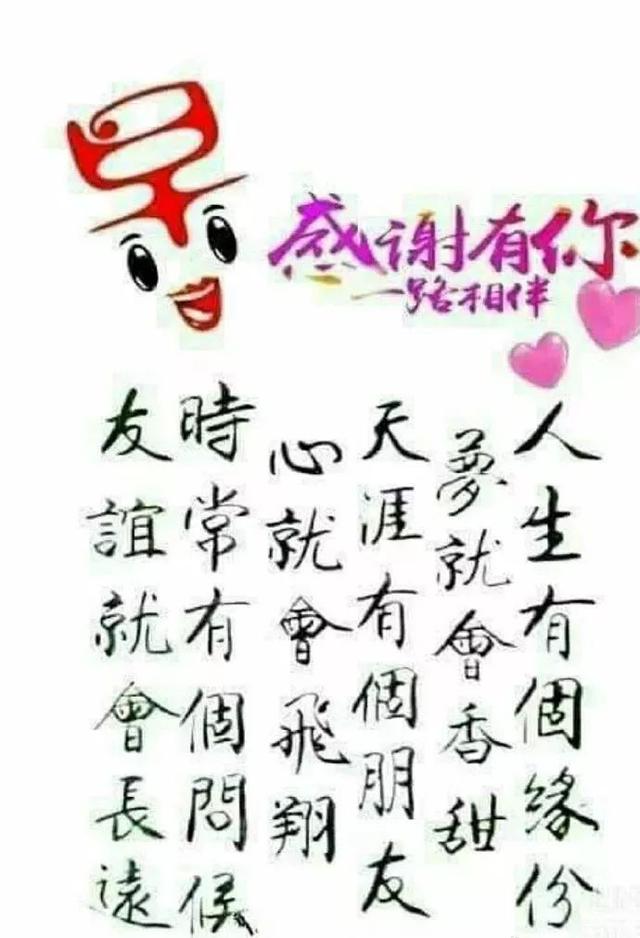 早
感谢有你
一路相伴
人生有個緣份
夢就會香甜
天涯有個朋友
心就會飛翔
時常有個問候
友誼就會長遠